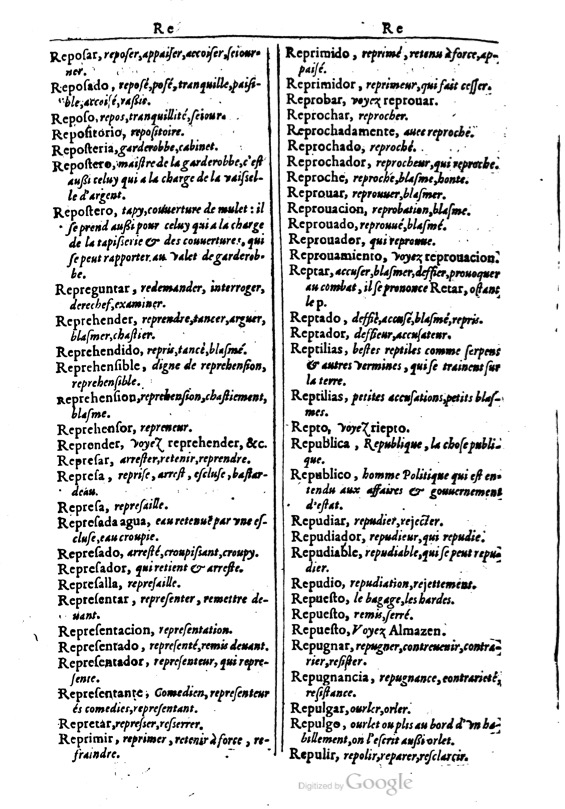 Re
Re
Repoſar, repoſer, appaiſer, accoiſer, ſeiour-
ner.
Repoſado, repoſé, poſé, tranquille, paiſi-
ble, accoiſé, raßis.
Repoſo, repos, tranquillité, ſeiour.
Repoſitorio, repoſitoire.
Repoſteria, garderobbe, cabinet.
Repoſtero, maiſtre de la garderobbe, c'eſt
außi celuy qui a la charge de la vaiſſel-
le d'argent.
Repoſtero, tapy, couuerture de mulet : il
ſe prend außi pour celuy qui a la charge
de la tapiſſerie & des couuertures, qui
ſe peut rapporter au valet de garderob-
be.
Repreguntar, redemander, interroger,
derechef, examiner.
Reprehender, reprendre, tancer, arguer,
blaſmer, chaſtier.
Reprehendido, repris, tancé, blaſmé.
Reprehenſible, digne de reprehenſion,
reprehenſible.
Reprehenſion, reprehenſion, chaſtiement,
blaſme.
Reprehenſor, repreneur.
Reprender, voyez reprehender, &c.
Repreſar, arreſter, retenir, reprendre.
Repreſa, repriſe, arreſt, eſcluſe, baſtar-
deau.
Repreſa, repreſaille.
Repreſada agua, eau retenuë par vne eſ-
cluſe, eau croupie.
Repreſado, arreſté, croupiſſant, croupy.
Repreſador, qui retient & arreſte.
Repreſalla, repreſaille.
Repreſentar, repreſenter, remettre de-
uant.
Repreſentacion, repreſentation.
Repreſentado, repreſenté, remis deuant.
Repreſentador, repreſenteur, qui repre-
ſente.
Repreſentante, Comedien, repreſenteur
és comedies, repreſentant.
Repretar, repreſſer, reſſerrer.
Reprimir, reprimer, retenir à force, re-
fraindre.
Reprimido, reprimé, retenu à force, ap-
paiſé.
Reprimidor, reprimeur, qui fait ceſſer.
Reprobar, voyez reprouar.
Reprochar, reprocher.
Reprochadamente, auec reproche.
Reprochado, reproché.
Reprochador, reprocheur, qui reproche.
Reproche, reproche, blaſme, honte.
Reprouar, reprouuer, blaſmer.
Reprouacion, reprobation, blaſme.
Reprouado, reprouué, blaſmé.
Reprouador, qui reprouue.
Reprouamiento, voyez reprouacion.
Reptar, accuſer, blaſmer, deffier, prouoquer
au combat, il ſe prononce Retar, oſtant
le p.
Reptado, deffié, accuſé, blaſmé, repris.
Reptador, deffieur, accuſateur.
Reptilias, beſtes reptiles comme ſerpens
& autres vermines, qui ſe trainent ſur
la terre.
Reptilias, petites accuſations, petits blaſ-
mes.
Repto, voyez riepto.
Republica, Republique, la choſe publi-
que.
Republico, homme Politique qui eſt en-
tendu aux affaires & gouuernement
d'eſtat.
Repudiar, repudier, rejecter.
Repudiador, repudieur, qui repudie.
Repudiable, repudiable, qui ſe peut repu-
dier.
Repudio, repudiation, rejettement.
Repueſto, le bagage, les hardes.
Repueſto, remis, ſerré.
Repueſto, Voyez Almazen.
Repugnar, repugner, contreuenir, contra-
rier, reſiſter.
Repugnancia, repugnance, contrarieté,
reſiſtance.
Repulgar, ourler, orler.
Repulgo, ourlet ou plis au bord d'vn ha-
billement, on l'eſcrit außi orlet.
Repulir, repolir, reparer, reſclarcir.
Digitized by Google